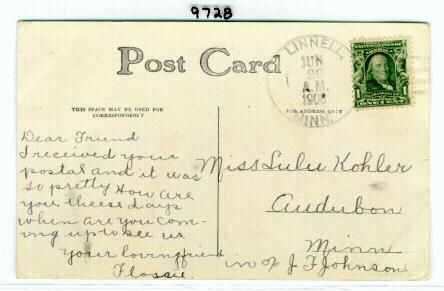 9728
Post Card
THIS SPACE MAY BE USED FOR
CORRESPONDENCE
FOR ADDRESS ONLY
LINNELL,
JUN
A.M.
MINN.
1
1
Dear Friend
I received your
postal and it was
so pretty How are
you theese days
when are you com-
ing up to see us
your loving friend
Flossie.
Miss Lulu Kohler
Audubon
Minn
in c/o J F Johnson.